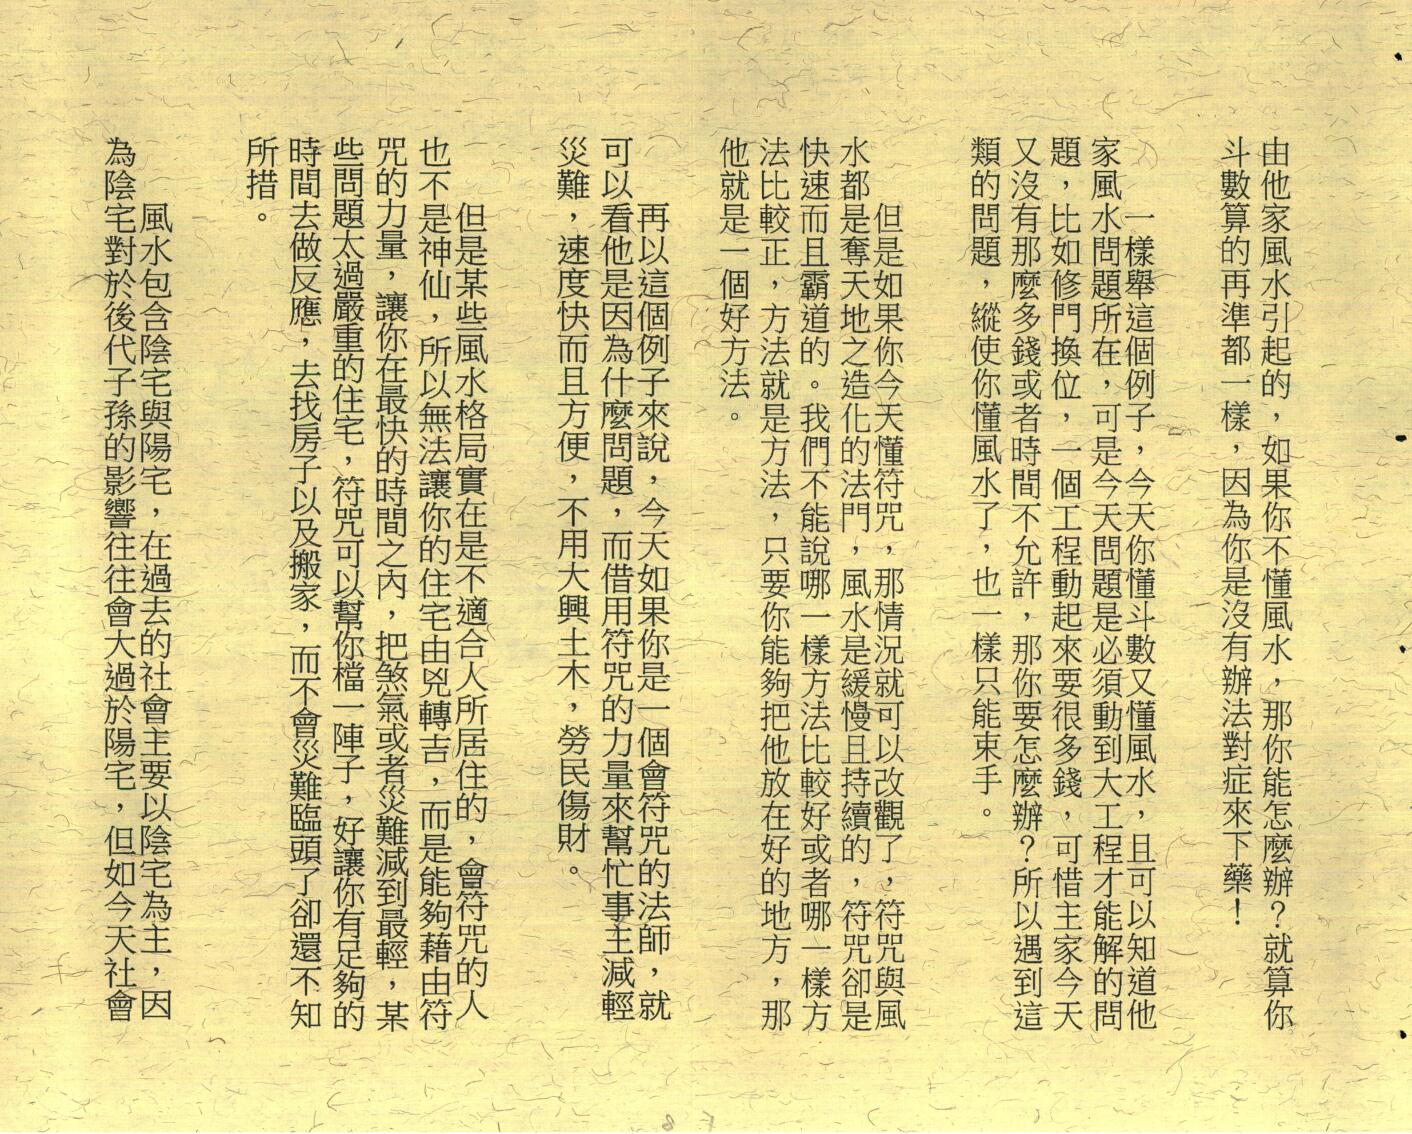 由他家風水引起的，如果你不懂風水，那你能怎麼辦？就算你
斗數算的再準都一樣，因為你是沒有辦法對症來下藥！
一樣舉這個例子，今天你懂斗數又懂風水，且可以知道他
家風水問題所在，可是今天問題是必須動到大工程才能解的問
題，比如修門換位，一個工程動起來要很多錢，可惜主家今天
又沒有那麼多錢或者時間不允許，那你要怎麼辦？所以遇到這
類的問題，縱使你懂風水了，也一樣只能束手。
但是如果你今天懂符咒，那情況就可以改觀了，符咒與風
水都是奪天地之造化的法門，風水是緩慢且持續的，符咒卻是
快速而且霸道的。我們不能說哪一樣方法比較好或者哪一樣方
法比較正，方法就是方法，只要你能夠把他放在好的地方，那
他就是一個好方法。
再以這個例子來說，今天如果你是一個會符咒的法師，就
可以看他是因為什麼問題，而借用符咒的力量來幫忙事主減輕
災難，速度快而且方便，不用大興土木，勞民傷財。
但是某些風水格局實在是不適合人所居住的，會符咒的人
也不是神仙，所以無法讓你的住宅由兇轉吉，而是能夠藉由符
咒的力量，讓你在最快的時間之內，把煞氣或者災難減到最輕，某
些問題太過嚴重的住宅，符咒可以幫你檔一陣子，好讓你有足夠的
時間去做反應，去找房子以及搬家，而不會災難臨頭了卻還不知
所措。
風水包含陰宅與陽宅，在過去的社會主要以陰宅為主，因
為陰宅對於後代子孫的影響往往會大過於陽宅，但如今天社會